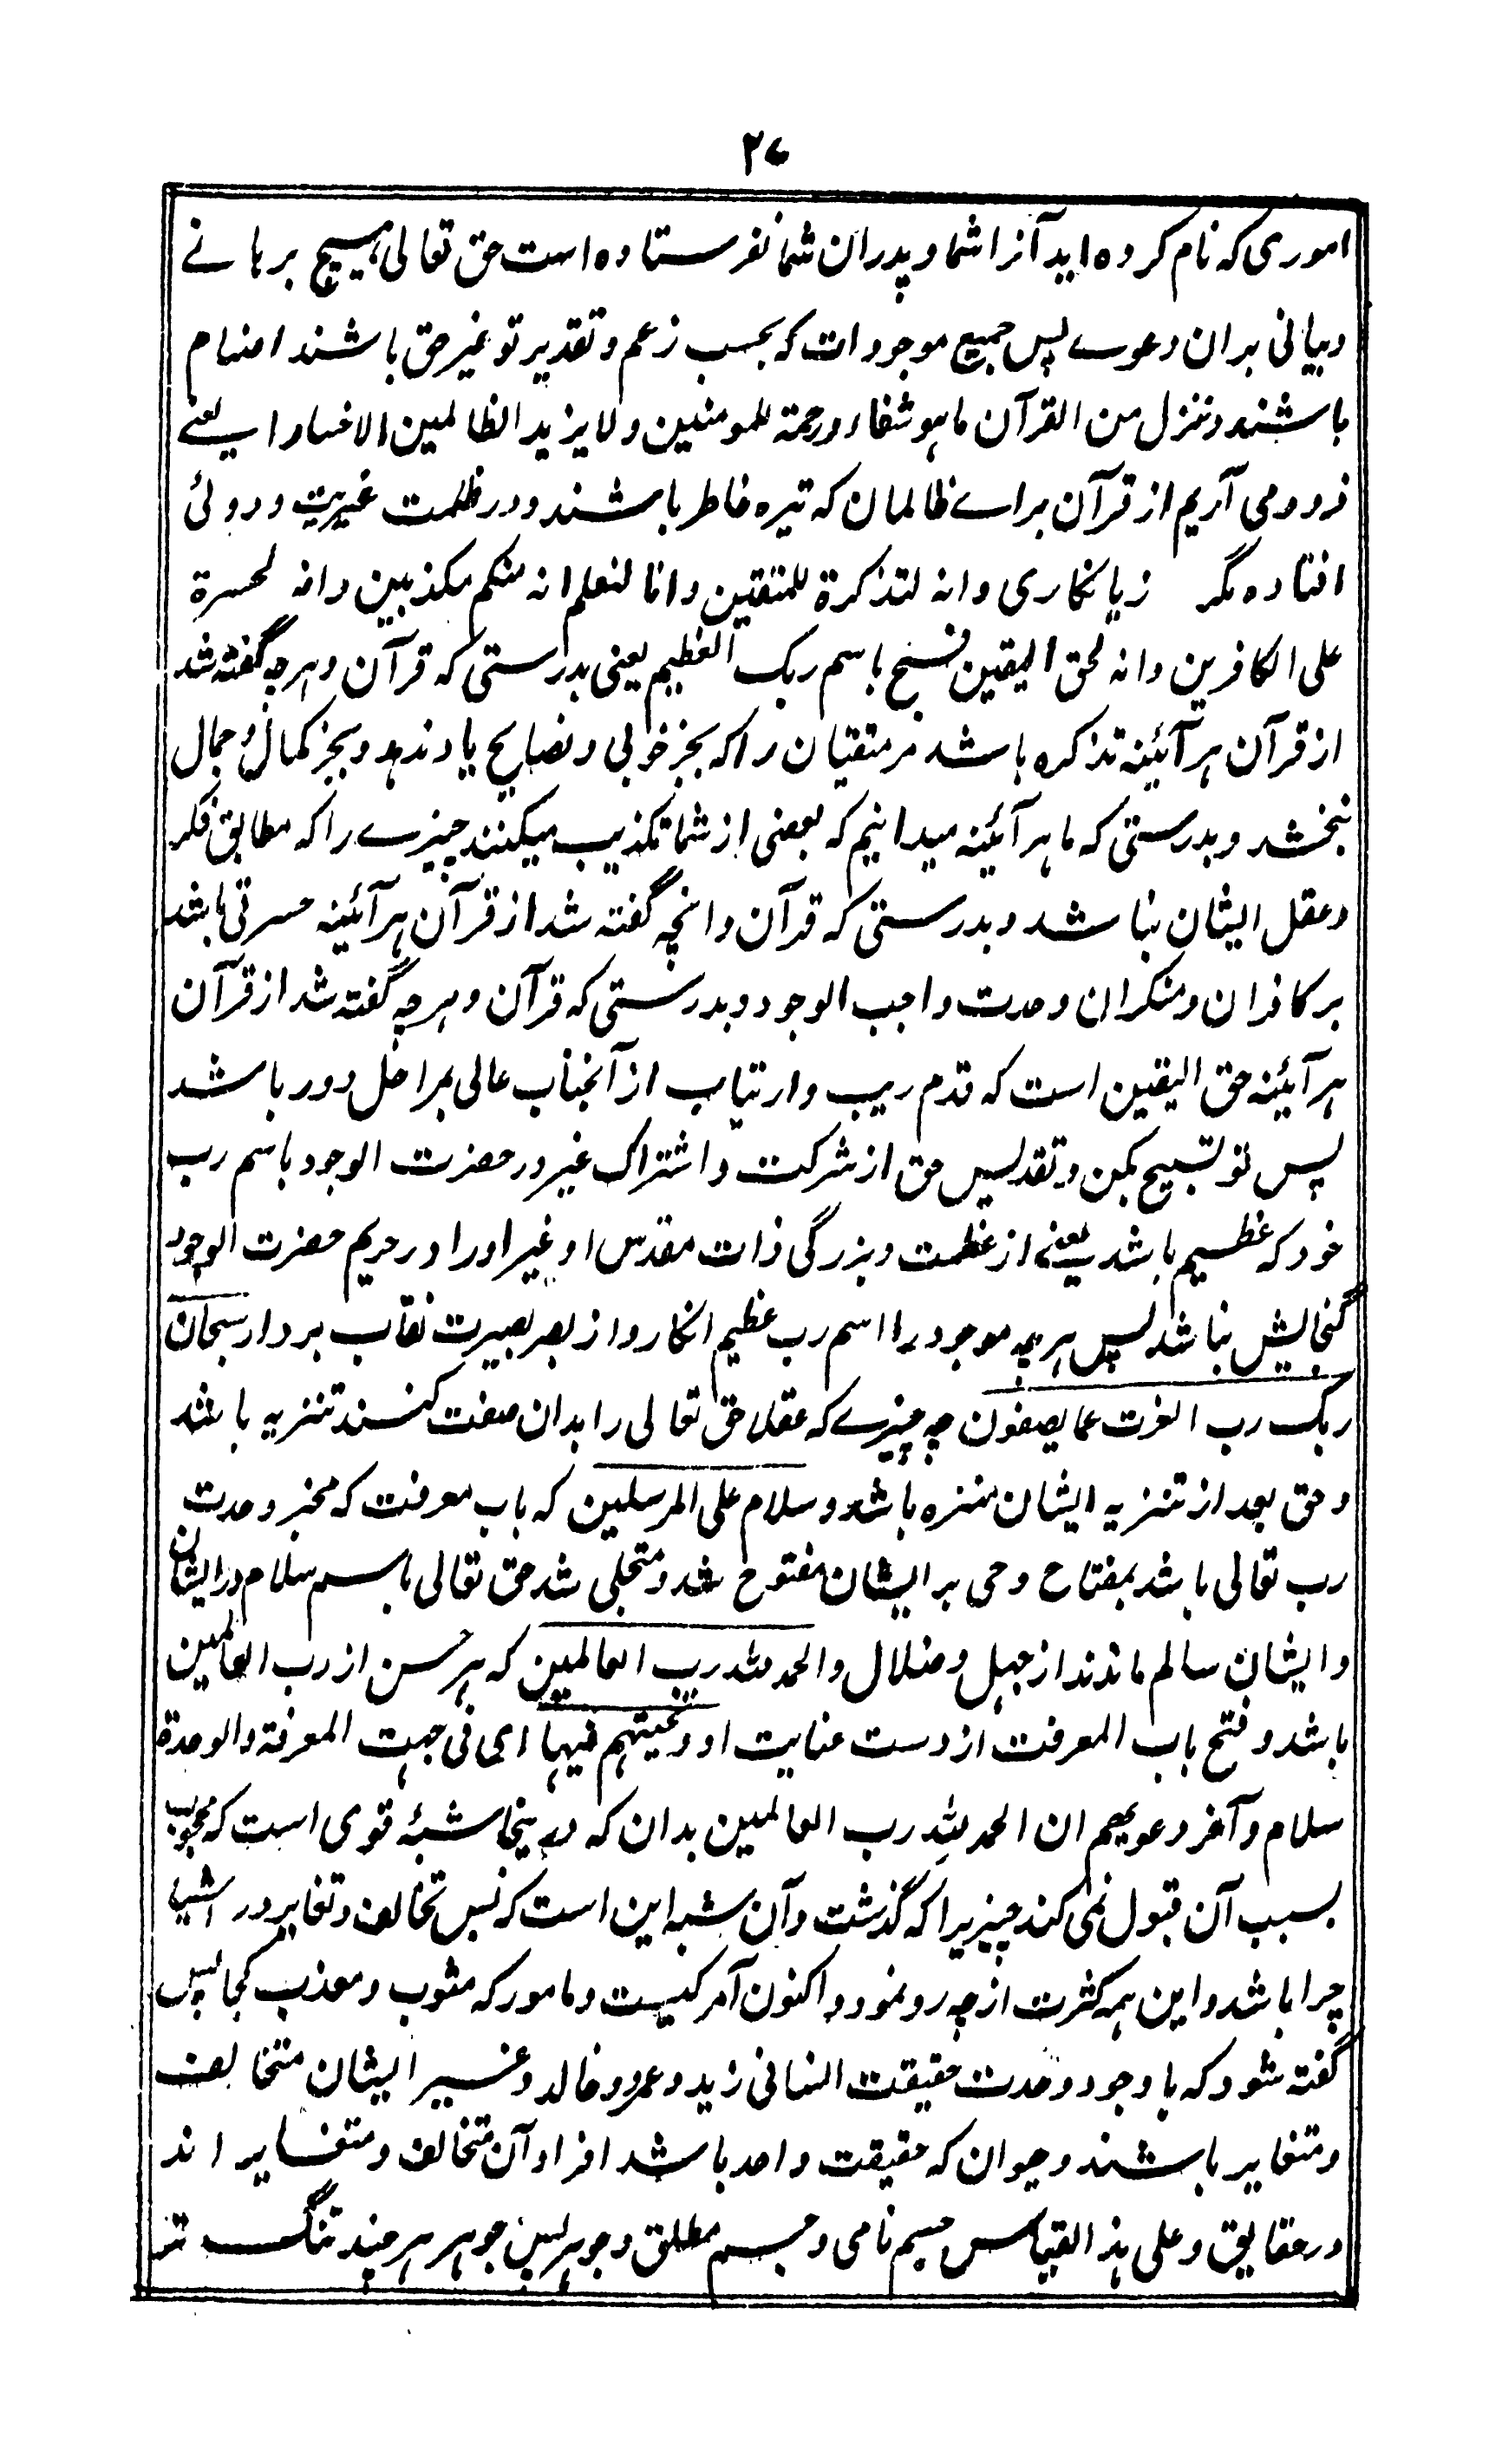 ۲۷
اموری که نام کرده اید آنرا شما و پدران شما نفرستاده است حق تعالی هیچ برهانے
و بیانی بدان دعوے پس جمیع موجودات که بحسب زعم و تقدیر تو غیر حق باشند اصنام
باشند و ننزل من القرآن ما هو شفاء و رحمة للمومنین و لا یزید الظالمین الا خسارا یعنے
فرود می آریم از قرآن براے ظالمان که تیره خاطر باشند و در ظلمت غیریت و دوئی
افتاده مگر زیانکاری و انه لتذکرة للمتقین و انا لنعلم انه منکم مکذبین و انه لحسرة
علی الکافرین و انه لحق الیقین فسبح باسم ربک العظیم یعنی بدرستی که قرآن و هرچه گفته شد
از قرآن هر آئینه تذکره باشد مر متقیان را که بجز خوبی و نصایح یاد ندهد و بجز کمال و جمال
نبخشد و بدرستی که ما هر آئینه میدانیم که بعضی از شما تکذیب میکنند چیزے را که مطابق فکر
و عقل ایشان نباشد و بدرستی که قرآن و انچه گفته شد از قرآن هر آئینه حسرتی باشد
بر کافران و منکران وحدت واجب الوجود و بدرستی که قرآن و هرچه گفته شد از قرآن
هر آئینه حق الیقین است که قدم ریب و ارتیاب از آنجناب عالی بمراحل دور باشد
پس تو تسبیح بکن و تقدیس حق از شرکت و اشتراک غیر در حضرت الوجود باسم رب
خود که عظیم باشد یعنے از عظمت و بزرگی ذات مقدس او غیر او را در حریم حضرت الوجود
گنجایش نباشد پس هریچه موجود را اسم رب عظیم انکار و از بصر بصیرت نقاب بردار سبحان
ربک رب العزت عما یصفون چه چیزے که عقلا حق تعالی را بدان صفت کنند تنزیه باشد
و حق بعد از تنزیه ایشان منزه باشد و سلام علی المرسلین که باب معرفت که مخبر وحدت
رب تعالی باشد بمفتاح وحی بر ایشان مفتوح شد و متجلی شد حق تعالی باسم سلام در ایشان
و ایشان سالم ماندند از جهل و ضلال و الحمد لله رب العالمین که هر حسن از رب العالمین
باشد و فتح باب المعرفت از دست عنایت او و تحیتهم فیها ای فی جهت المعرفة و الوحدة
سلام و آخر دعویهم ان الحمد لله رب العالمین بدان که درینجا شبهٔ قوی است که محجوب
بسبب آن قبول نمی کند چیزیرا که گذشت و آن شبه این است که پس تخالف و تغایر در اشیا
چرا باشد و این همه کثرت از چه رو نمود و اکنون آمر کیست و مامور که مثوب و معذب کجا پس
گفته شود که با وجود وحدت حقیقت انسانی زید و عمرو و خالد و غیر ایشان متخالف
و متغایر باشند و حیوان که حقیقت واحد باشد افراد آن متخالف و متغایر اند
در حقایق و علی هذا القیاس جسم نامی و جسم مطلق و جوهر پس جوهر هر چند تنگ تر